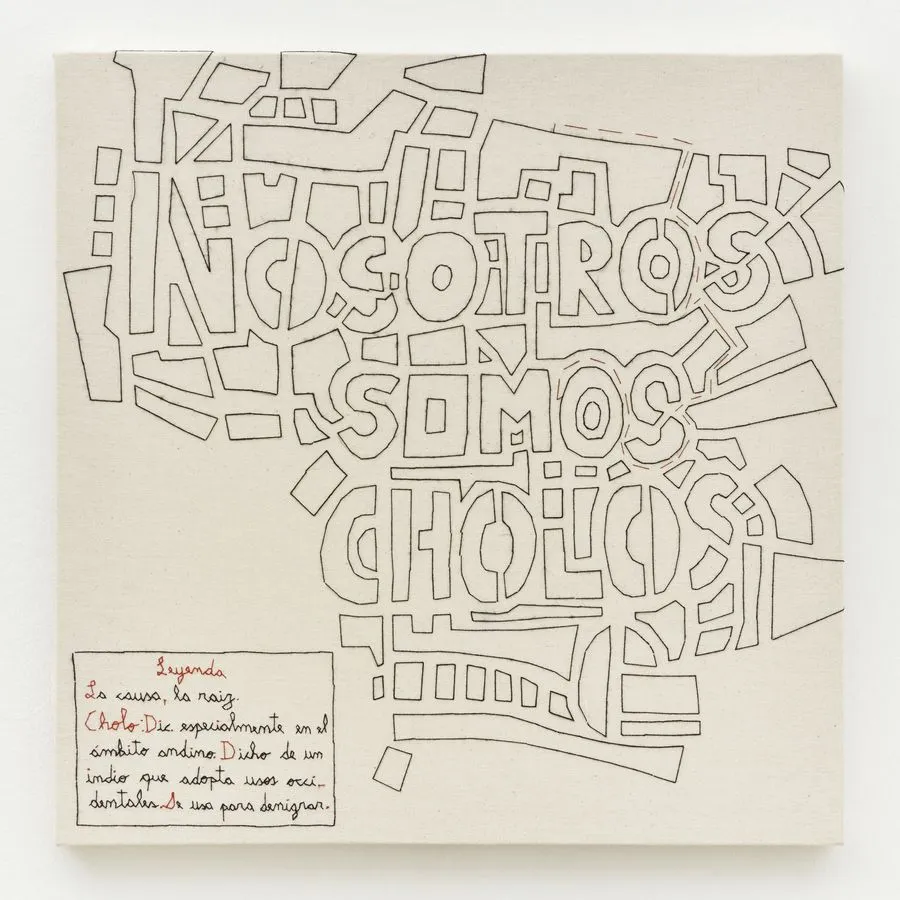 NOSOTROS
SOMOS
CHOLOS
Leyenda
La causa, la raiz.
Cholo: Dic. especialmente en el
ámbito andino. Dicho de un
indio que adopta usos occi-
dentales. Se usa para denigrar.